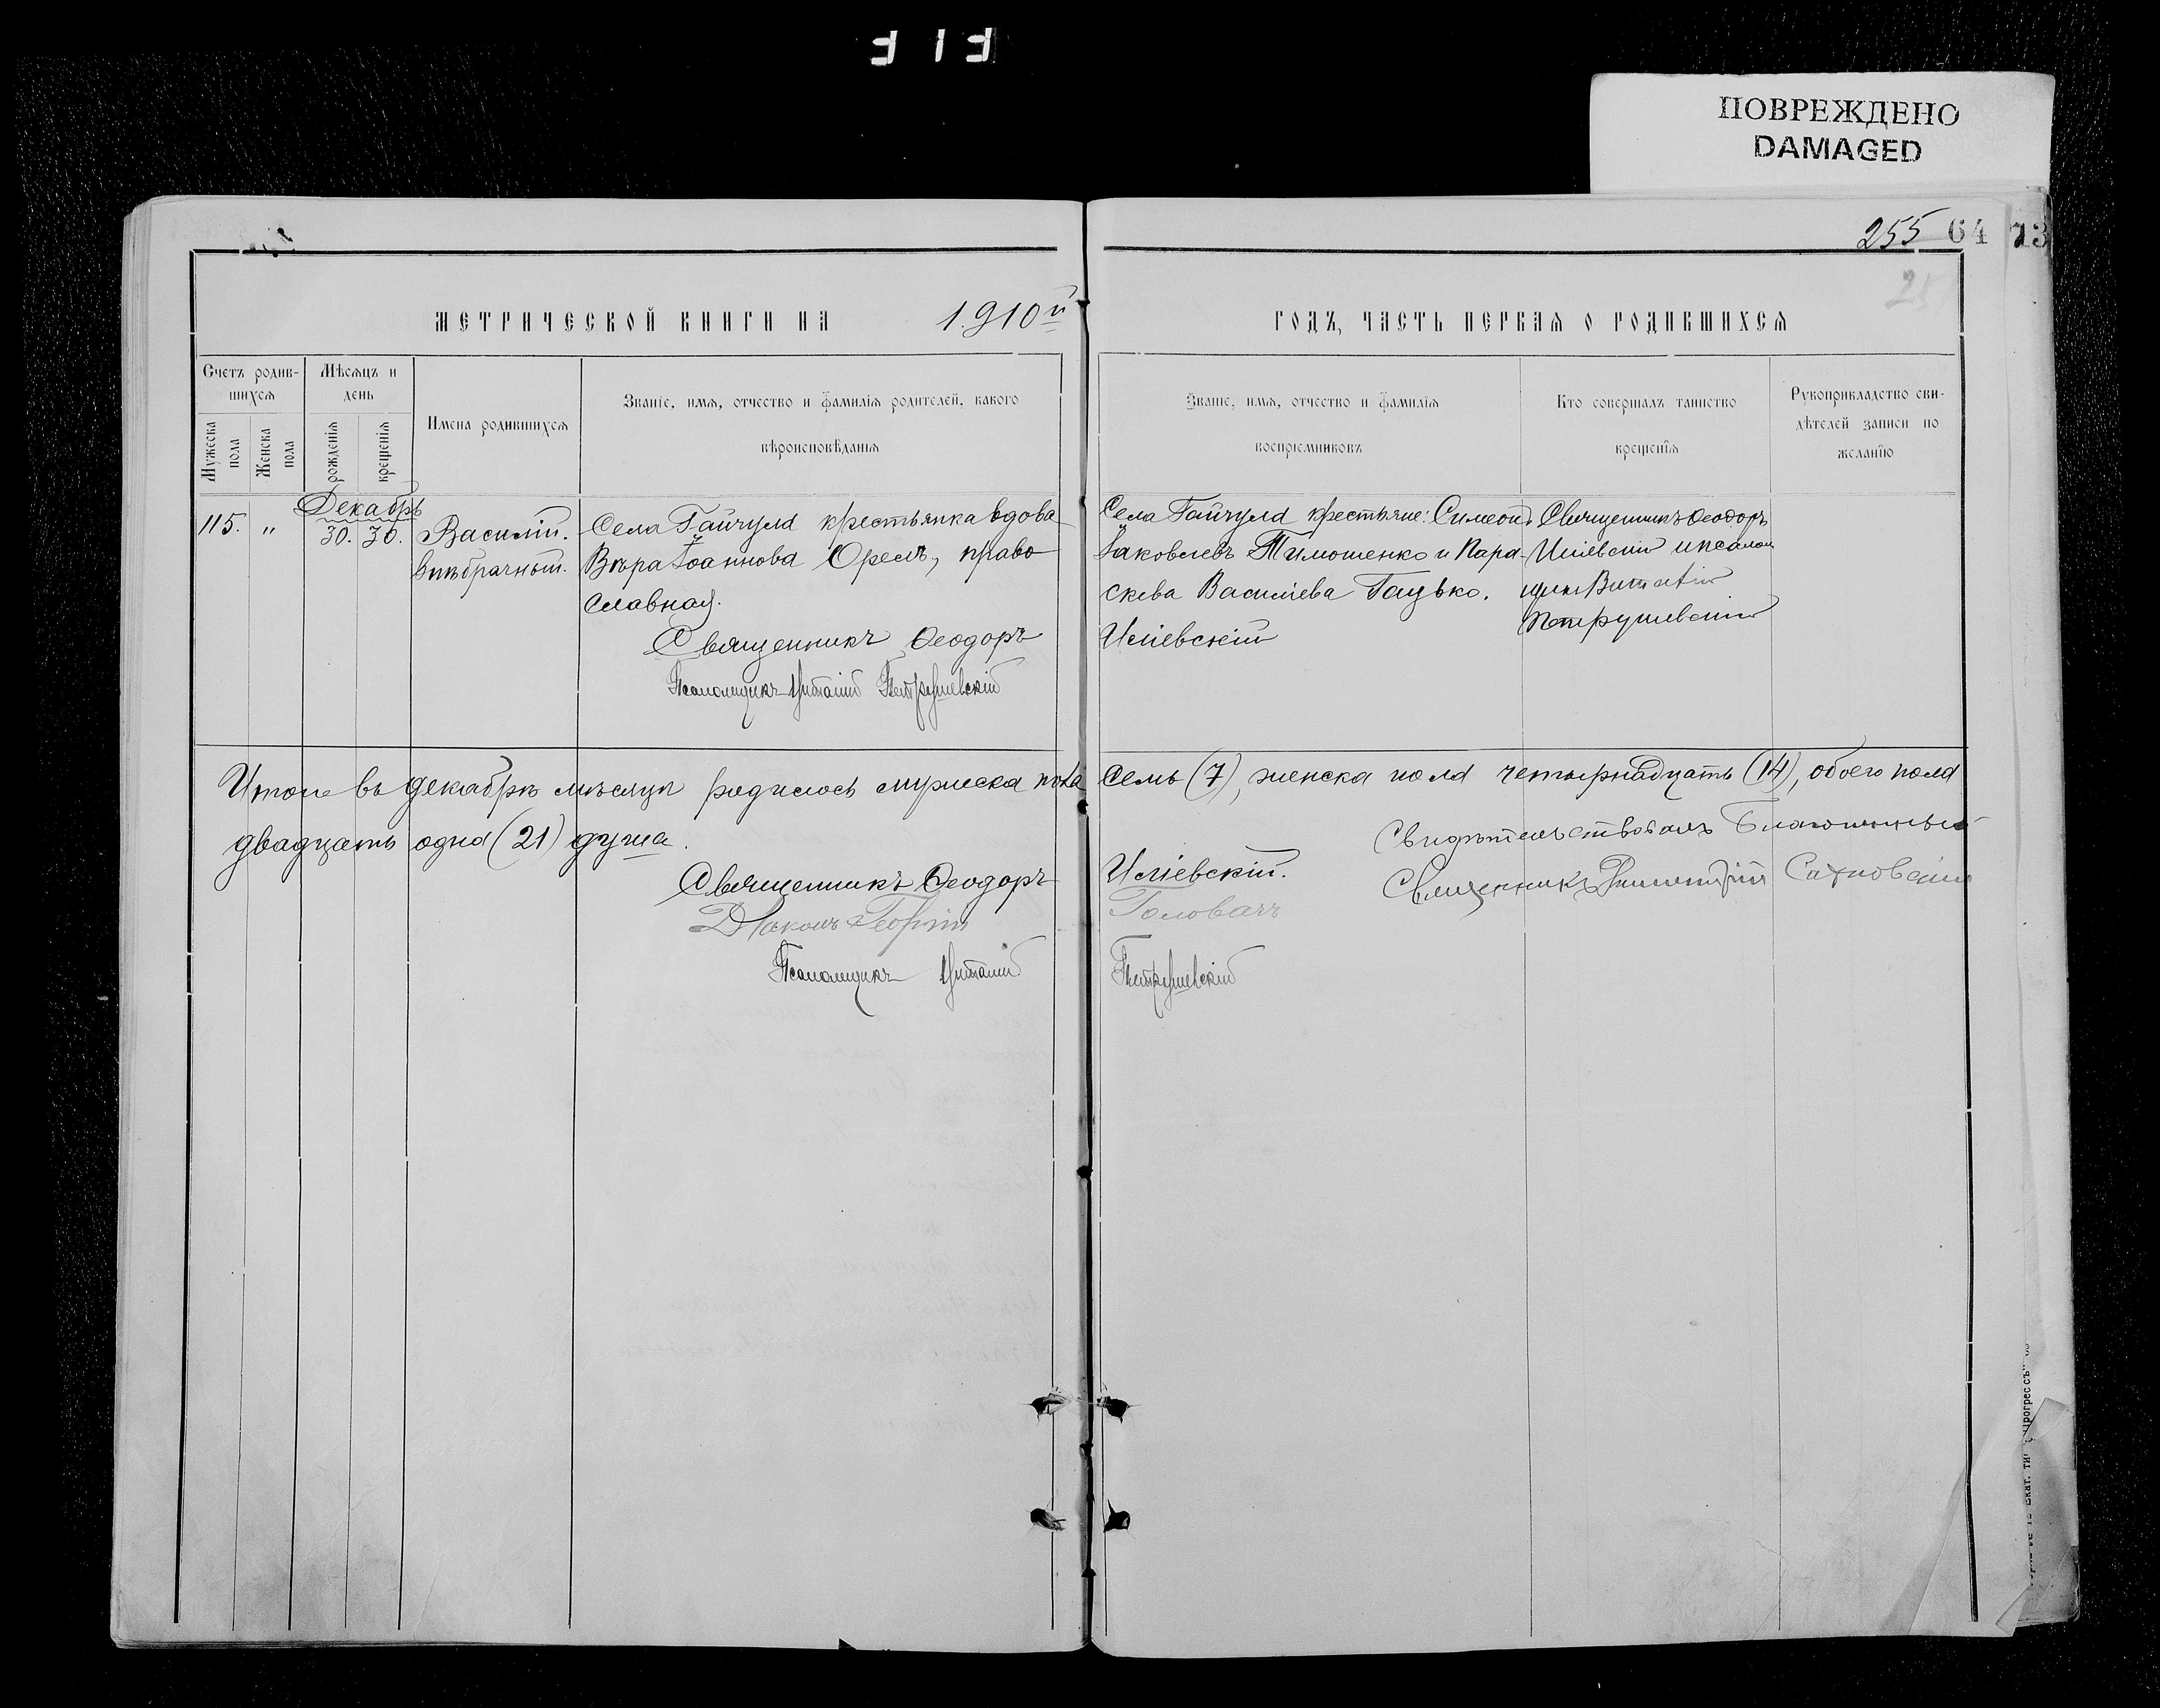 ПОВРЕЖДЕНО
DAMAGED
255 64 73
МЕТРИЧЕСКОЙ КНИГИ НА 1910й
ГОДЪ, ЧАСТЬ ПЕРВАЯ О РОДИВШИХСЯ
Счетъ родив-
шихся
Мѣсяцъ и
день
Мужеска
пола
Женска
пола
рожденія
крещенія
Имена родившихся
Званіе, имя, отчество и фамилія родителей, какого
вѣроисповѣданія
Званіе, имя, отчество и фамилія
воспріемниковъ
Кто совершалъ таинство
крещенія
Рукоприкладство сви-
дѣтелей записи по
желанію
Декабрь
115. „ 30. 30.
Василій.
внѣбрачный.
Села Гайчула крестьянка вдова
Вѣра Іоаннова Орелъ, право
славная.
Священникъ Ѳеодоръ
Псаломщикъ Виталій Петрушевскій
Села Гайчула крестьяне: Симеонъ
Іаковлевъ Тимошенко и Пара-
скева Василіева Гацько.
Иліевскій
Священникъ Ѳеодоръ
Иліевскій и псалом
щикъ Виталій
Петрушевскій
Итого въ декабрѣ мѣсяцѣ родилось мужеска пола семь (7), женска пола четырнадцать (14), обоего пола
двадцать одна (21) душа.
Священникъ Ѳеодоръ Иліевскій.
Діаконъ Георгій Головачъ
Псаломщикъ Виталій Петрушевскій
Свидѣтельствовалъ Благочинный
Священникъ Сахновскій